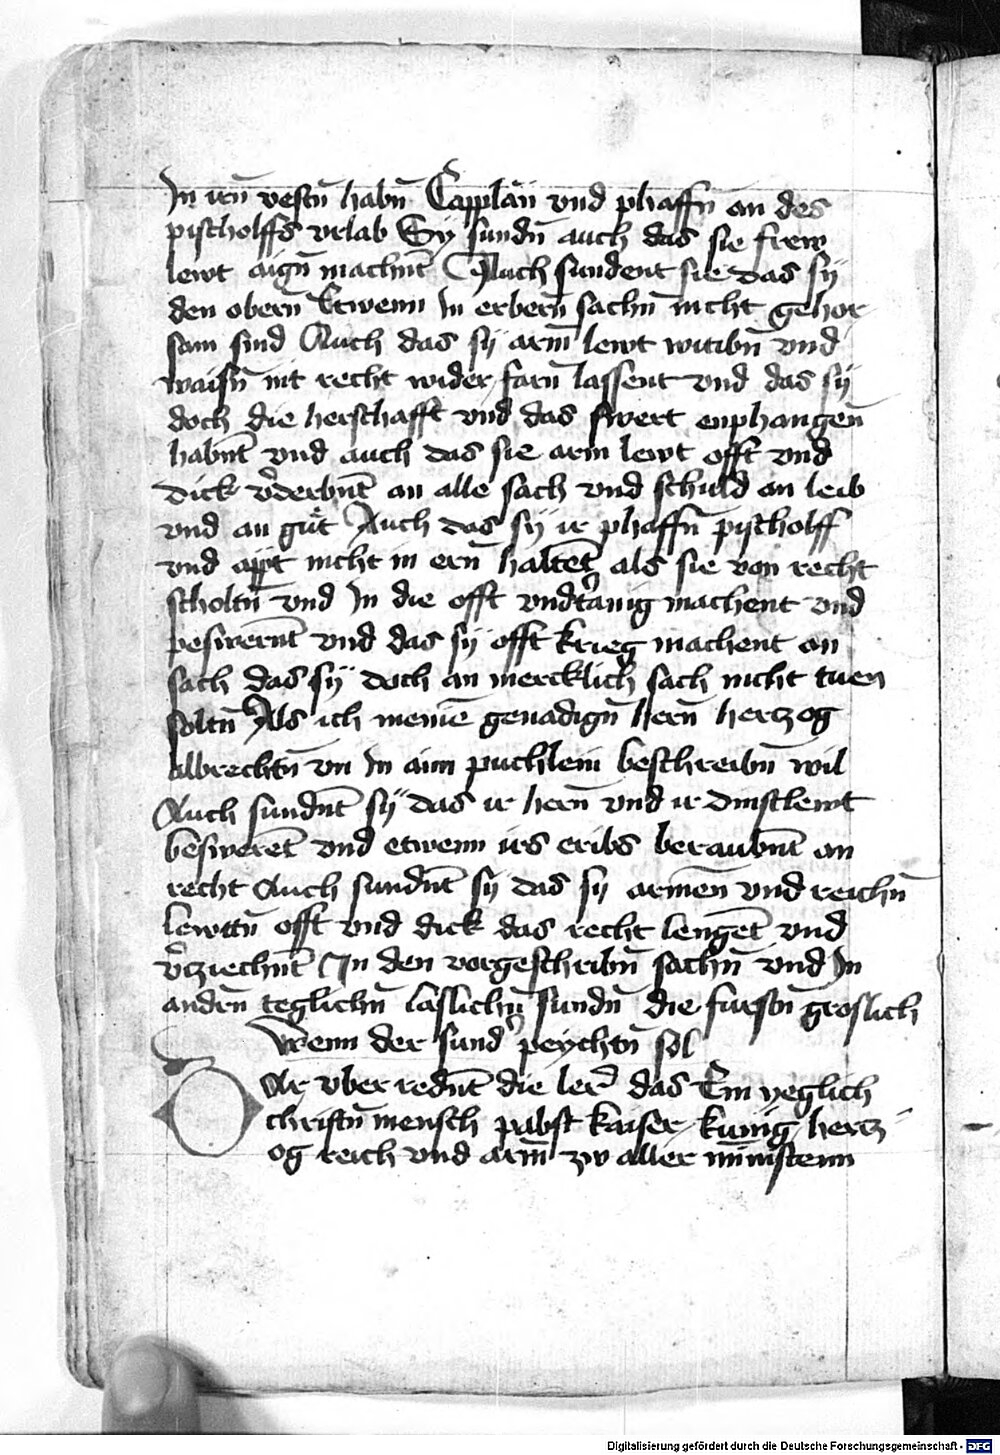 In irn̄ vestn̄ habn̄ Capplän vnd phaffn̄ an des
pischolffs vrlab Sy sundn̄ auch das sie frew
lewt aign̄ machnt̄ Auch sundent sie das sÿ
den obern̄ Etwenn In erbern̄ sachn̄ nicht gehor
sam sind Auch das sÿ arm̄ lewt witibn̄ vnd
waisn̄ nit recht wider farn̄ lassent vnd das sÿ
doch die herschafft vnd das swert enphangen̄
habnt̄ vnd auch das sie arm lewt offt vnd
dick v̉derbnt̄ an alle sach vnd schuld an leib
vnd an gůt Auch das sÿ ir phaffn̄ pischolff
vnd appt nicht in ern̄ haltet̄ als sie von recht
scholtn̄ vnd In die offt vndt̉anig machent vnd
peswernt̄ vnd das sÿ offt krieg machent an
sach das sÿ doch an mercklich sach nicht tuen
soltn̄ Als ich meinē genadign̄ hern̄ hertzog
albrechtn̄ vn̄ In aim puchlein beschreibn̄ wil
Auch sundnt̄ sÿ das ir hern̄ vnd ir dinstlewt
besweret̄ vnd etwenn irs eribs beraubnt̄ an
recht Auch sundnt̄ sy das sy armen̄ vnd reichn̄
lewttn̄ offt vnd dick das recht lenget̄ vnd
v̉cziechnt̄ In den vorgeschribn̄ sachn̄ vnd In
andern̄ teglichn̄ laslichn̄ sundn̄ die furstn̄ groslich
Wenn der sund̉ peychtn̄ sol
Dar vber rednt̄ die ler̉ das Ein yeglich
christn̄ mensch pabst kaiser kunig hertz
og reich vnd arm̄ zw aller mīnstenn
Digitalisierung gefördert durch die Deutsche Forschungsgemeinschaft - DFG